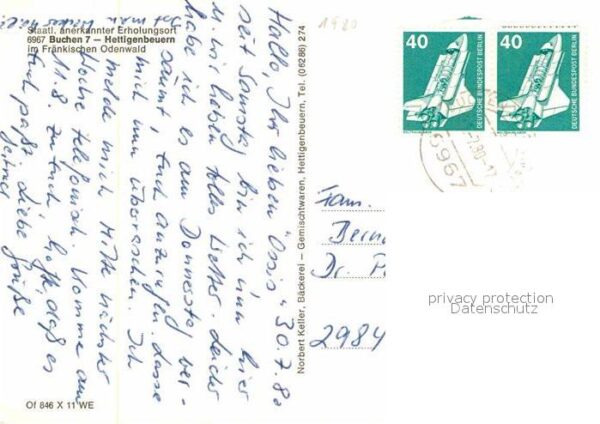 Staatl. anerkannter Erholungsort
6967 Buchen 7 — Hettigenbeuern
im Fränkischen Odenwald
Hallo, Ihr lieben "Ossis" 30.7.80
seit Samstag bin ich nun hier
u. wir haben tolles Wetter. Leider
habe ich es am Donnerstag ver-
säumt, Euch anzurufen. Lasse
mich nun überraschen. Ich
melde mich Mitte nächster
Woche telefonisch. Komme am
11.8. zu Euch, hoffe, daß es
Euch paßt. Liebe Grüße
Norbert Keller, Bäckerei — Gemischtwaren, Hettigenbeuern, Tel. (06286) 274
1980
40
DEUTSCHE BUNDESPOST BERLIN
40
DEUTSCHE BUNDESPOST BERLIN
6967
Fam.
Bern
Dr. P
2984
privacy protection
Datenschutz
Of 846 X 11 WE